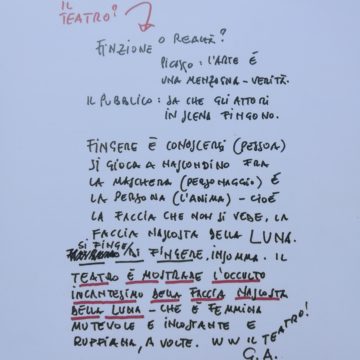 IL
TEATRO?
FINZIONE O REALTÀ?
PICASSO: L'ARTE È
UNA MENZOGNA-VERITÀ.
IL PUBBLICO: SA CHE GLI ATTORI
IN SCENA FINGONO.
FINGERE È CONOSCERSI (PERSONA)
SI GIOCA A NASCONDINO FRA
LA MASCHERA (PERSONAGGIO) E
LA PERSONA (L'ANIMA) - CIOÈ
LA FACCIA CHE NON SI VEDE, LA
FACCIA NASCOSTA DELLA LUNA.
SI FINGE
DI FINGERE, INSOMMA. IL
TEATRO È MOSTRARE L'OCCULTO
INCANTESIMO DELLA FACCIA NASCOSTA
DELLA LUNA - CHE È FEMMINA
MUTEVOLE E INCOSTANTE E
RUFFIANA, A VOLTE. W W IL TEATRO!
G.A.